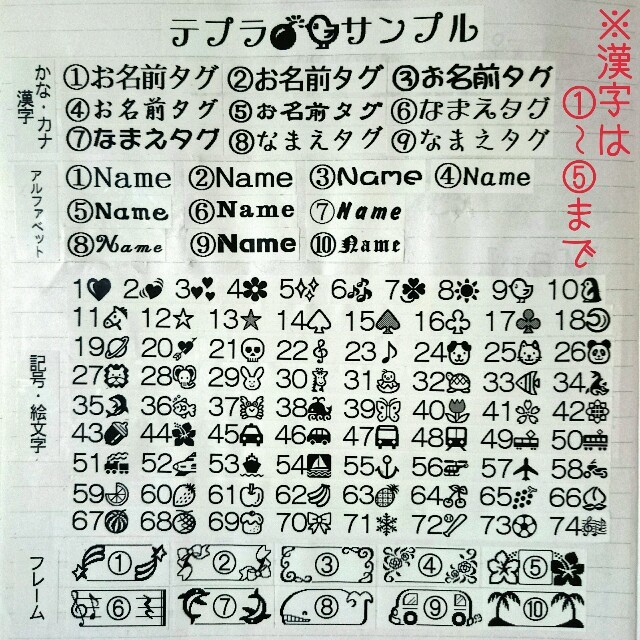 テプラ サンプル
※漢字は
①〜⑤まで
かな・カナ
漢字
①お名前タグ ②お名前タグ ③お名前タグ
④お名前タグ ⑤お名前タグ ⑥なまえタグ
⑦なまえタグ ⑧なまえタグ ⑨なまえタグ
アルファベット
①Name ②Name ③Name ④Name
⑤Name ⑥Name ⑦Name
⑧Name ⑨Name ⑩Name
記号・絵文字
1 2 3 4 5 6 7 8 9 10
11 12 13 14 15 16 17 18
19 20 21 22 23 24 25 26
27 28 29 30 31 32 33 34
35 36 37 38 39 40 41 42
43 44 45 46 47 48 49 50
51 52 53 54 55 56 57 58
59 60 61 62 63 64 65 66
67 68 69 70 71 72 73 74
フレーム
① ② ③ ④ ⑤
⑥ ⑦ ⑧ ⑨ ⑩